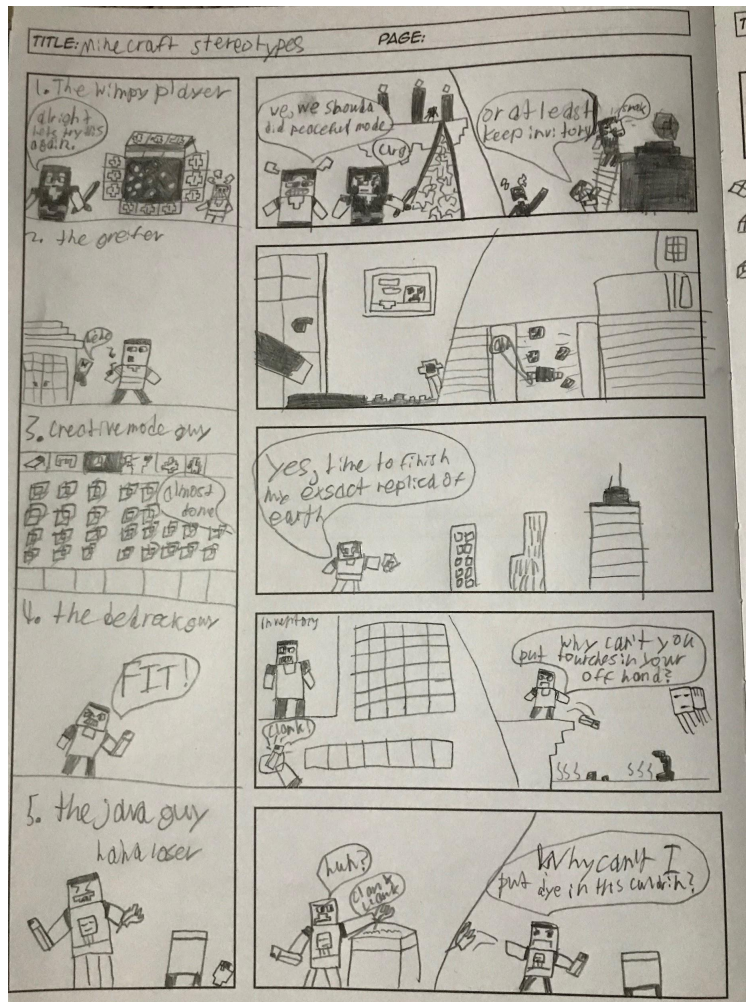 TITLE: Minecraft stereotypes
PAGE:
1. The wimpy player
alright
lets try this
again.
ye, we shoulda
did peaceful mode
or at least
keep invitory
2. the greifer
hehe
3. creative mode guy
almost
done
yes, time to finish
my exsact replica of
earth
4. the bedrock guy
FIT!
inveritory
clank!
Why can't you
put tourches in your
off hand?
5. the java guy
haha loser
huh?
clank
clank
Why can't I
put dye in this culdrin?